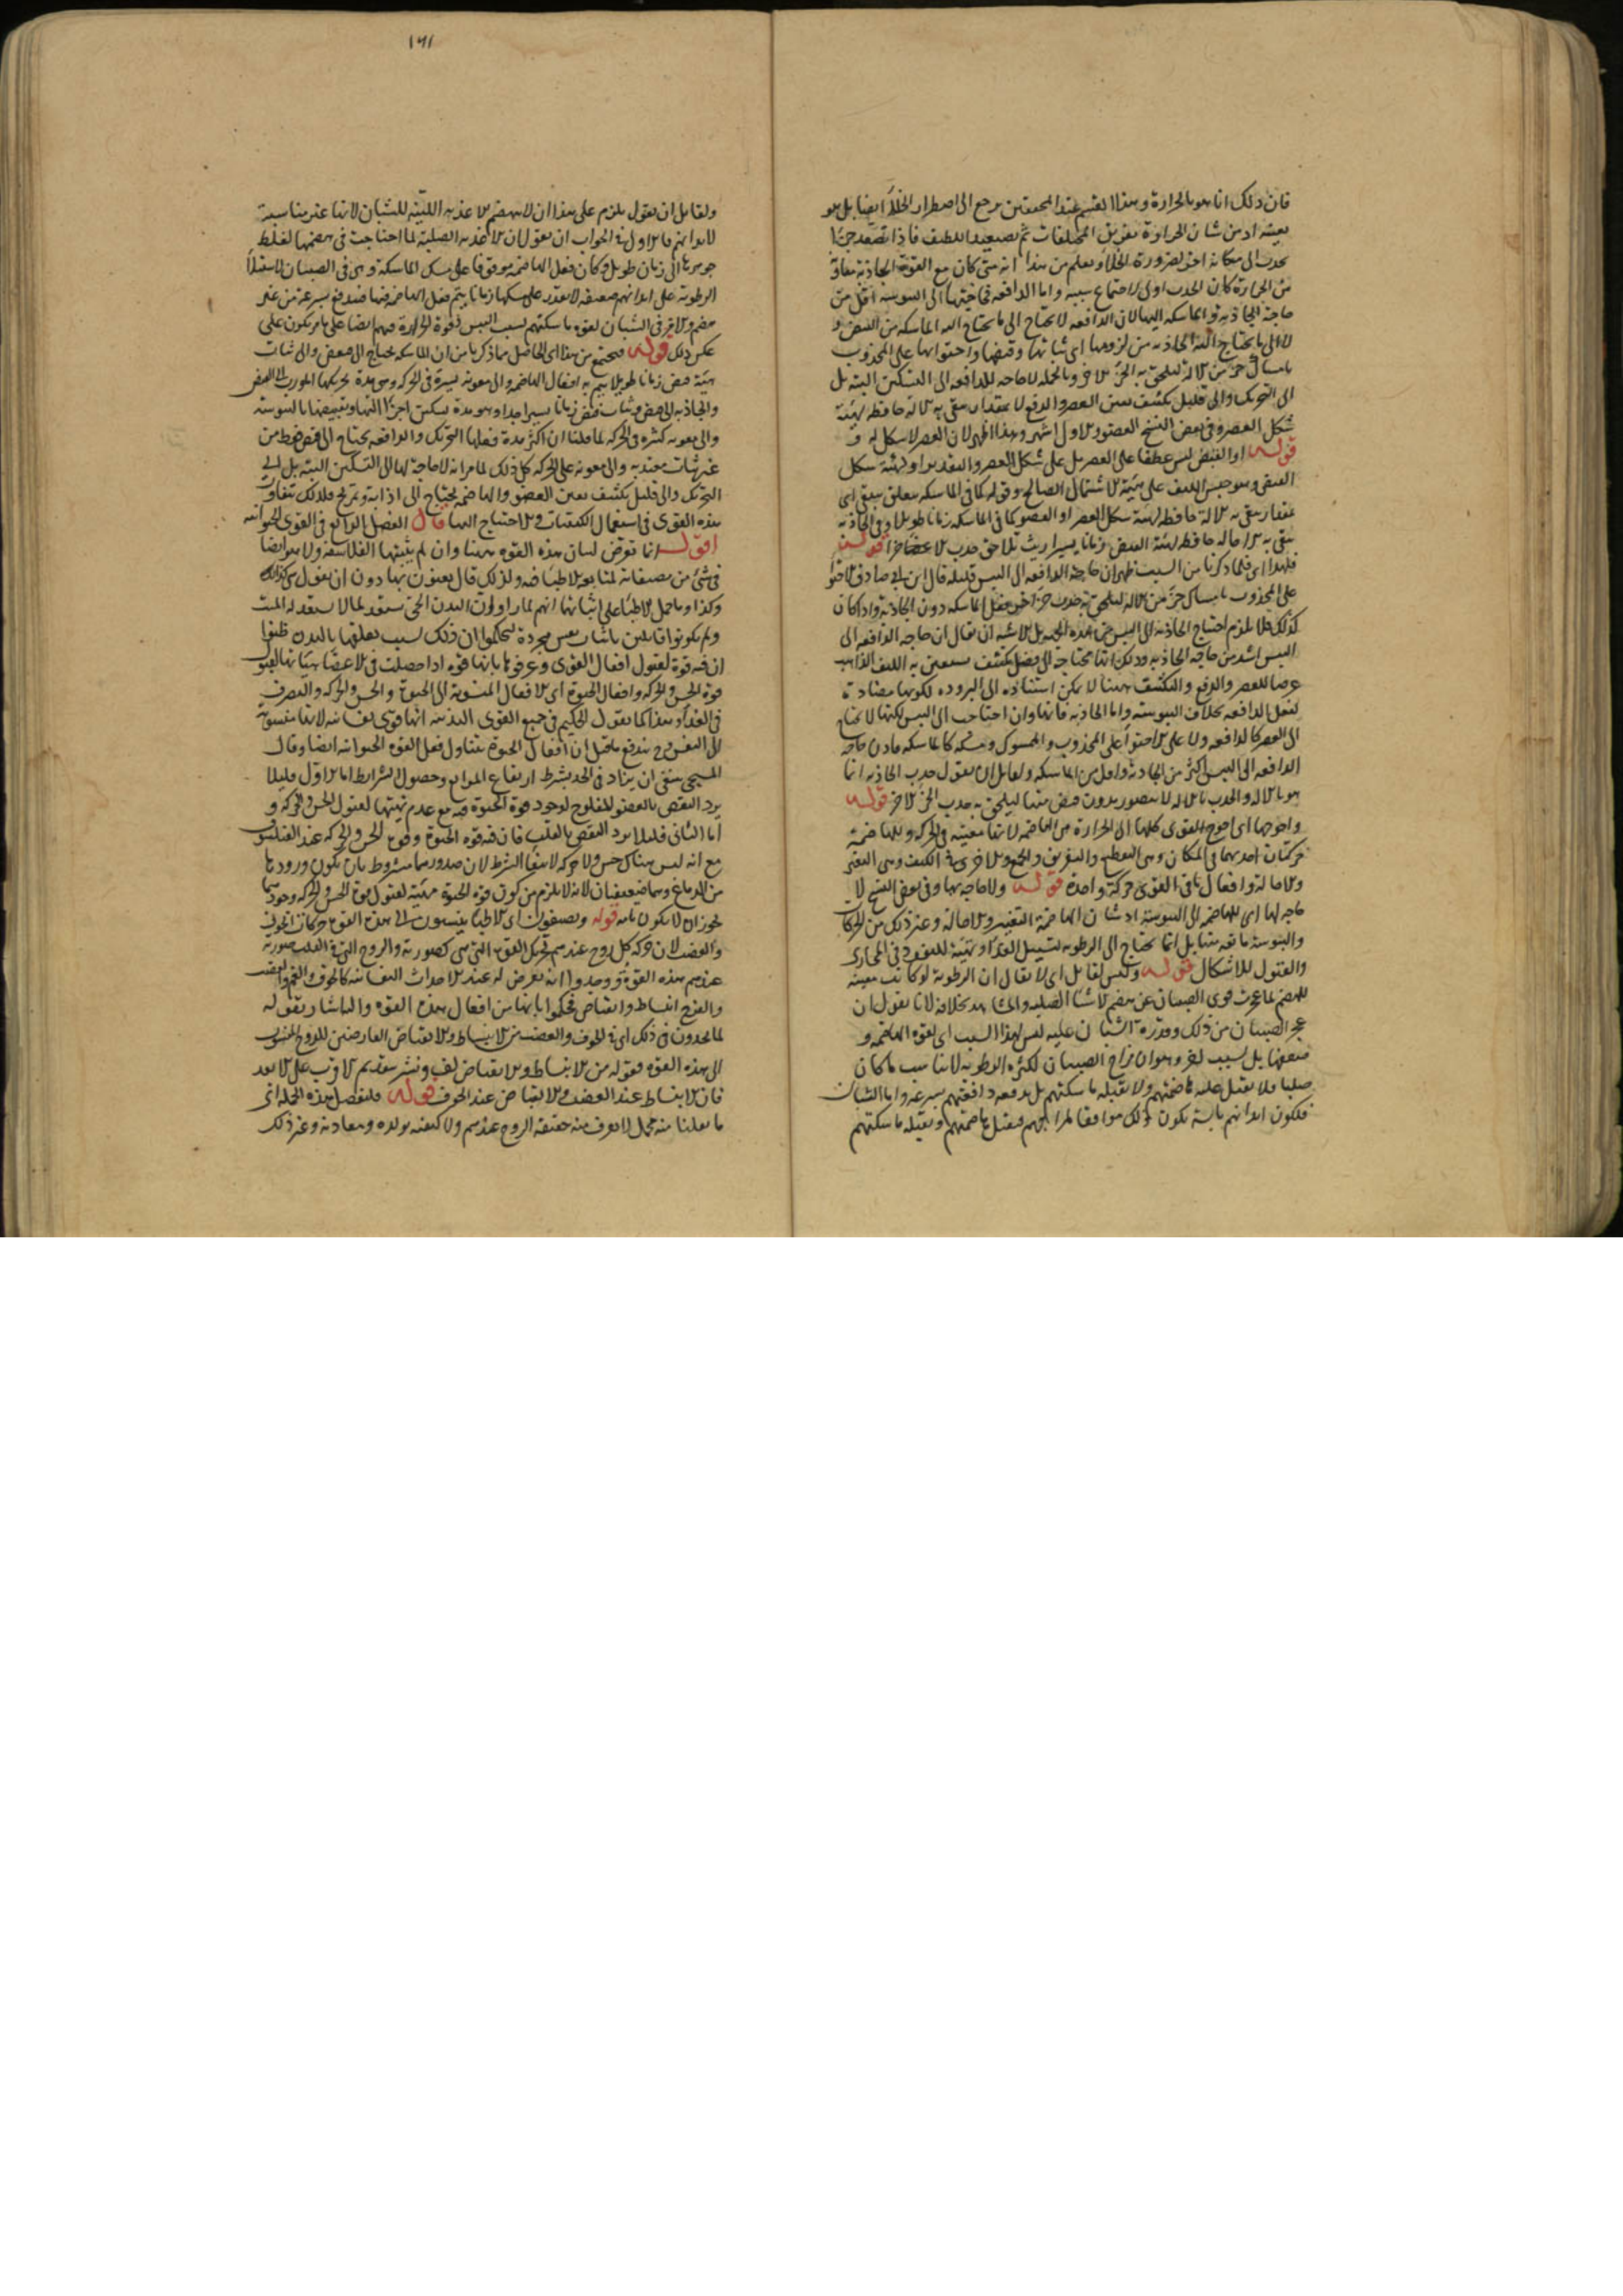 فان ذلك انما هو بالحرارة وهذا القسم عند المحققين يرجع الى اضطرار الخلاء ايضا بل هو
بعينه اذ من شان الحرارة تفريق المختلفات ثم تصعيد اللطيف فاذا تصعد جزء
يجذب الى مكانه اخر لضرورة الخلاء ويعلم من هذا انه متى كان مع القوة الجاذبة معاونة
من الحرارة كان الجذب اولى لاجتماع سببيه واما الدافعة فحاجتها الى اليبوسة اقل من
حاجة الجاذبة والماسكة اليها لان الدافعة لا تحتاج الى ما تحتاج اليه الماسكة من القبض
ولا الى ما يحتاج اليه الجاذبة من لزومها اى ثباتها وقبضها واحتوائها على المجذوب
بامساك جزء من الالة ليلحق به الجزء الاخر وبالجملة لا حاجة للدافعة الى التسكين البتة بل
الى التحريك والى قليل تكثيف يعين العصر والدفع لا بمقدار يبقى به الالة حافظة لهيئة
شكل العصر وفى بعض النسخ العضو والاول اشهر وهذا اظهر لان العصر لا شكل له
قوله او القبض ليس عطفا على العصر بل على شكل العصر والتقدير او لهيئة شكل
القبض وهو حبس الليف على هيئة الاشتمال الصالح وقوله كما فى الماسكة متعلق بيبقى اى
بمقدار يبقى به الالة حافظة لهيئة شكل العصر او العضو كما فى الماسكة زمانا طويلا وفى الجاذبة
يبقى به الالة حافظة لهيئة القبض زمانا يسيرا ريث تلاحق جذب الاعضاء قوله
فلهذا اى فلما ذكرنا من السبب ظهر ان حاجة الدافعة الى اليبس قليلة قال ابن ابى صادق الاحتواء
على المجذوب بامساك جزء من الالة ليلحق به جذب جزء اخر فعل الماسكة دون الجاذبة واذا كان
كذلك فلا يلزم احتياج الجاذبة الى اليبس من هذه الجهة بل الاشبه ان يقال ان حاجة الدافعة الى
اليبس اشد من حاجة الجاذبة وذلك انها محتاجة الى فضل تكثيف يستعين به الليف الذاهب
عرضا للعصر والدفع والتكثيف ههنا لا يمكن استناده الى البرودة لكونها مضادة
لفعل الدافعة بخلاف اليبوسة واما الجاذبة فانها وان احتاجت الى اليبس لكنها لا تحتاج
الى العصر كالدافعة ولا على الاحتواء على المجذوب والممسوك ومسكه كالماسكة فاذن حاجة
الدافعة الى اليبس اكثر من الجاذبة واقل من الماسكة ولقائل ان يقول جذب الجاذبة انما
هو بالالة والجذب بالالة لا يتصور بدون قبض منها ليلحق به جذب الجزء الاخر قوله
واحوجها اى احوج القوى كلها الى الحرارة هى الهاضمة لانها معينة فى الحركة وللهاضمة
حركتان احديهما فى المكان وهى التقطيع والتفريق والجمع والاخرى فى الكيف وهى التغير
والاحالة وافعال باقى القوى حركة واحدة قوله ولا حاجة بها وفى بعض النسخ لا
حاجة لها اى للهاضمة الى اليبوسة اذ شان الهاضمة التغيير والاحالة وغير ذلك من الحركات
واليبوسة مانعة منها بل انما تحتاج الى الرطوبة لتسييل الغذاء وتهيئته للنفوذ فى المجارى
والقبول للاشكال قوله وليس لقائل اى لا يقال ان الرطوبة لو كانت معينة
للهضم لما عجزت قوى الصبيان عن هضم الاشياء الصلبة والمشاهد بخلافه لانا نقول ان
عجز الصبيان من ذلك وقدرة الشبان عليه ليس لهذا السبب اى لقوة الهاضمة و
ضعفها بل لسبب اخر وهو ان مزاج الصبيان لكثرة الرطوبة لا يناسب ما كان
صلبا فلا يقبل عليه هاضمتهم ولا تقبله ماسكتهم بل يدفعه دافعتهم بسرعة واما الشبان
فلكون ابدانهم يابسة يكون ذلك موافقا لمزاجهم فيقبل هاضمتهم وتقبله ماسكتهم
١٦١
ولقائل ان يقول يلزم على هذا ان لا ينهضم الاغذية اللينة للشبان لانها غير مناسبة
لابدانهم فالاولى فى الجواب ان يقول ان الاغذية الصلبة لما احتاجت فى هضمها لغلظ
جوهرها الى زمان طويل وكان فعل الهاضمة موقوفا على مسك الماسكة وهى فى الصبيان لاستيلاء
الرطوبة على ابدانهم ضعيفة لا تقدر على مسكها زمانا يتم فعل الهاضمة فيها فتندفع بسرعة من غير
هضم والامر فى الشبان لقوة ماسكتهم بسبب اليبس وقوة الحرارة فيهم ايضا على ما مر يكون على
عكس ذلك قوله فيجتمع من هذا اى الحاصل مما ذكرنا من ان الماسكة تحتاج الى قبض والى ثبات
هيئة قبض زمانا طويلا ليتم به افعال الهاضمة والى معونة يسيرة فى الحركة وهى مدة تحريكها المورب الى القبض
والجاذبة الى قبض وثبات قبض زمانا يسيرا جدا وهو مدة تسكين اجزاء التها وتقبيضها باليبوسة
والى معونة كثيرة فى الحركة لما قلنا ان اكثر مدة فعلها التحريك والدافعة تحتاج الى قبض فقط من
غير ثبات معتد به والى معونة على الحركة كل ذلك لما مر انه لا حاجة لها الى التسكين البتة بل الى
التحريك والى قليل تكثيف يعين العصر والهاضمة تحتاج الى اذابة وتمزيج فلذلك تتفاوت
هذه القوى فى استعمال الكيفيات والاحتياج اليها قال الفصل الرابع فى القوى الحيوانية
اقول انما تعرض لبيان هذه القوة ههنا وان لم يثبتها الفلاسفة ولا هو ايضا
فى شئ من مصنفاته لمتابعة الاطباء فيه ولذلك قال يعنون بها دون ان يقول هى كذا
وكذا وما حمل الاطباء على اثباتها انهم لما راوا ان البدن الحى مستعد لما لا يستعد له الميت
ولم يكونوا قائلين باثبات نفس مجردة ليحكموا ان ذلك بسبب تعلقها بالبدن ظنوا
ان فيه قوة لقبول افعال القوى وعرفوها بانها قوة اذا حصلت فى الاعضاء هياتها لقبول
قوة الحس والحركة وافعال الحيوة اى الافعال المنسوبة الى الحيوة والحس والحركة والتصرف
فى الغذاء وهذا كما يقول الحكيم فى جميع القوى البدنية انها قوى نفسانية لانها منسوبة
الى النفس وح يندفع ما قيل ان افعال الحيوة يتناول فعل القوة الحيوانية ايضا وقال
المسيحى ينبغى ان يزاد فى الحد بشرط ارتفاع الموانع وحصول الشرائط اما الاول فليلا
يرد النقض بالعضو المفلوج لوجود قوة الحيوة فيه مع عدم تهيئتها لقبول الحس والحركة و
اما الثانى فلئلا يرد النقض بالقلب فان فيه قوة الحيوة وقوة الحس والحركة عند الفيلسوف
مع انه ليس هناك حس ولا حركة لانتفاء الشرط لان صدورهما مشروط بان يكون ورودها
من الدماغ وهما ضعيفان لانه لا يلزم من كون قوة الحيوة مهيئة لقبول قوة الحس والحركة وجودهما
لجواز ان لا يكون تامة قوله ويضيفون اى الاطباء ينسبون الى هذه القوة حركات الخوف
والغضب لان حركة كل روح عندهم بتحريك القوة التى هى كصورته والروح التى فى القلب صورته
عندهم هذه القوة ووجدوا انه يعرض له عند الاحداث النفسانية كالخوف والغم والغضب
والفرح انبساط وانقباض فحكموا بانها من افعال هذه القوة والى هذا اشار بقوله
لما يجدون فى ذلك اى فى الخوف والغضب من الانبساط والانقباض العارضين للروح المنسوب
الى هذه القوة فقوله من الانبساط والانقباض لف ونشر بتقديم الاقرب على الابعد
فان الانبساط عند الغضب والانقباض عند الخوف قوله فلنفصل هذه الجملة اى
ما نقلنا منه مجمل لا يعرف منه حقيقة الروح عندهم ولا كيفية تولده ومعادنه وغير ذلك